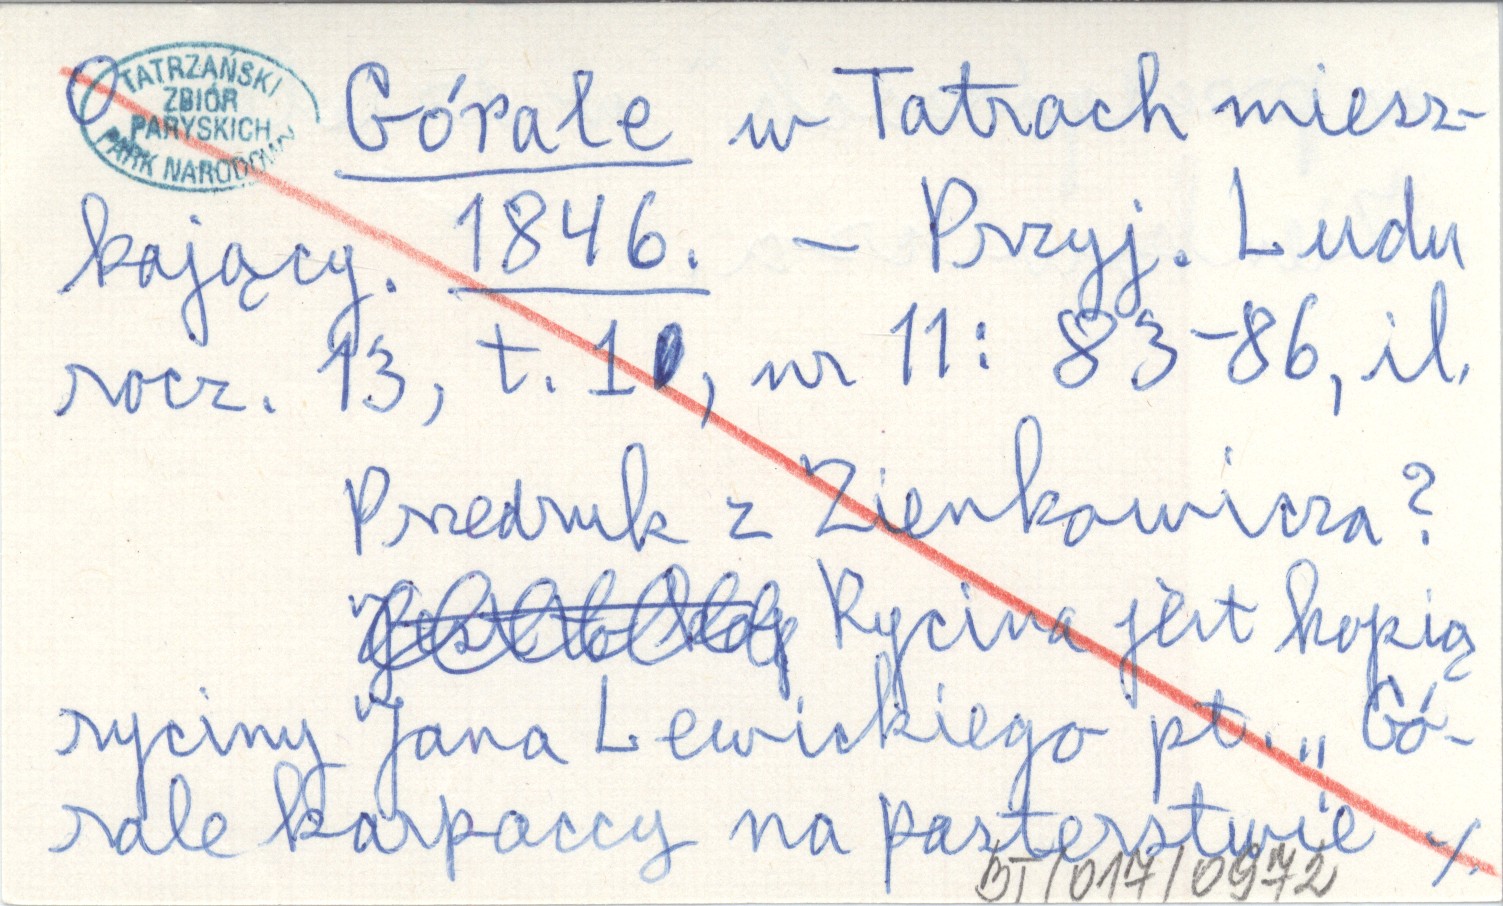 O
TATRZAŃSKI
ZBIÓR
PARYSKICH
PARK NARODOWY
Górale w Tatrach miesz-
kający. 1846. – Przyj. Ludu
rocz. 13, t. 10, nr 11: 83-86, il.
Przedruk z Zienkowicza?
Rycina jest kopią
ryciny Jana Lewickiego pt. „Gó-
rale karpaccy na pasterstwie ./.
BT/017/0972